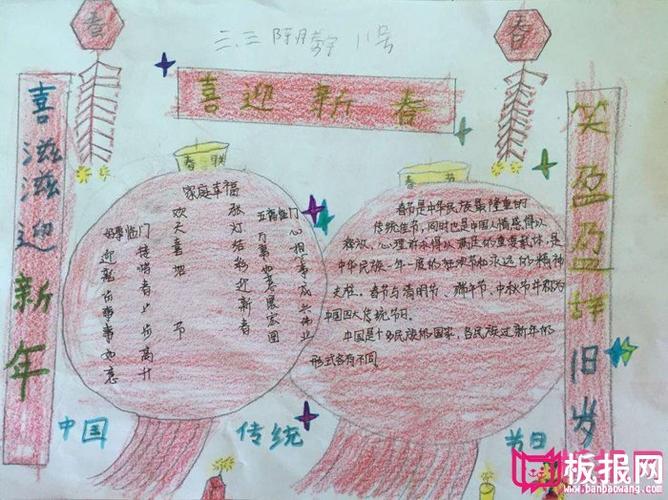 春
三.三 11号
春
喜迎新春
喜滋滋迎新年
笑盈盈辞旧岁
春联
家庭幸福
好事临门
迎新春事事如意
接鸿春步步高升
欢天喜地 节
张灯结彩迎新春
五福临门
万事如意展宏图
心想事成兴伟业
春节
春节是中华民族最隆重的
传统佳节,同时也是中国人情感得以
释放、心理诉求得以满足的重要载体,是
中华民族一年一度的狂欢节和永远的精神
支柱。春节与清明节、端午节、中秋节并称为
中国四大传统节日。
中国是个多民族的国家,各民族过新年的
形式各有不同
中国 传统 节日
板报网
www.banbaowang.com